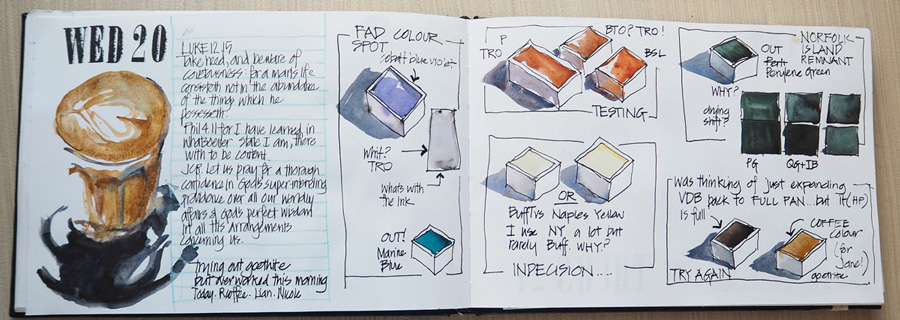 WED 20
LUKE 12.15
Take heed, and beware of
covetousness: for a man's life
consisteth not in the abundance
of the things which he
possesseth.
Phil 4.11 for I have learned, in
whatsoever state I am, there
with to be content.
Let us pray for a thorough
confidence in God's super-intending
providence over all our worldly
affairs & God's perfect wisdom
in all His arrangements
concerning us.
Trying out goethite
but overworked this morning
Today. Lian. Nicole
FAD COLOUR
SPOT
cobalt blue violet
TRO
What's with
the ink
OUT!
Marine
Blue
P
TRO
BTO? TRO!
BSL
TESTING
OR
Buff Ti vs Naples Yellow
I use NY a lot but
rarely Buff. WHY?
INDECISION....
NORFOLK
ISLAND
REMNANT
OUT
Perylene Green
WHY?
drying
shift?
PG
QG+IB
Was thinking of just expanding
VDB back to FULL PAN... but TF(HP)
is full
COFFEE
Colour
(for
Jane!)
TRY AGAIN
goetite